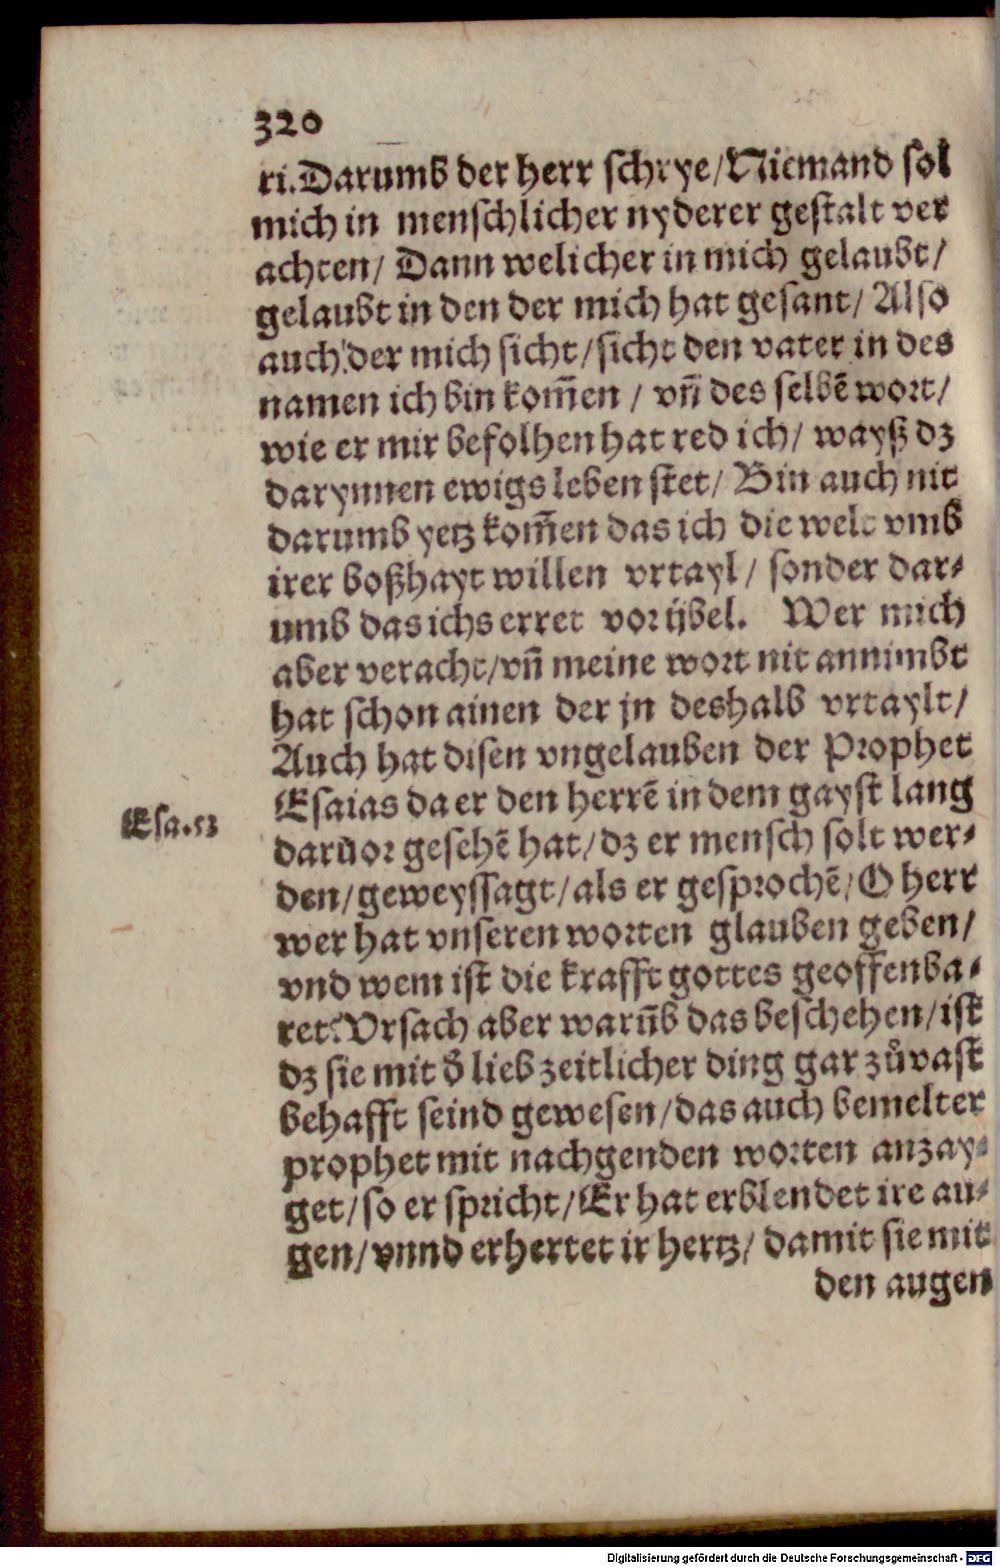 320
ri. Darumb der herr schrye/ Niemand sol
mich in menschlicher nyderer gestalt ver
achten/ Dann welicher in mich gelaubt/
gelaubt in den der mich hat gesant/ Also
auch der mich sicht/ sicht den vater in des
namen ich bin kom̃en / vñ des selbẽ wort/
wie er mir befolhen hat red ich/ wayß dz
darynnen ewigs leben stet/ Bin auch nit
darumb yetz kom̃en das ich die welt vmb
irer boßhayt willen vrtayl/ sonder dar⸗
umb das ichs erret vor ijbel. Wer mich
aber veracht/ vñ meine wort nit annimbt
hat schon ainen der jn deshalb vrtaylt/
Auch hat disen vngelauben der Prophet
Esaias da er den herrẽ in dem gayst lang
Esa.53
darũor gesehẽ hat/ dz er mensch solt wer⸗
den/ geweyssagt/ als er gesprochẽ/ O herr
wer hat vnseren worten glauben geben/
vnd wem ist die krafft gottes geoffenba⸗
ret? Vrsach aber warũb das beschehen/ ist
dz sie mit d̕ lieb zeitlicher ding gar zůvast
behafft seind gewesen/ das auch bemelter
prophet mit nachgenden worten anzay⸗
get/ so er spricht/ Er hat erblendet ire au⸗
gen/ vnnd erhertet ir hertz/ damit sie mit
den augen
Digitalisierung gefördert durch die Deutsche Forschungsgemeinschaft - DFG